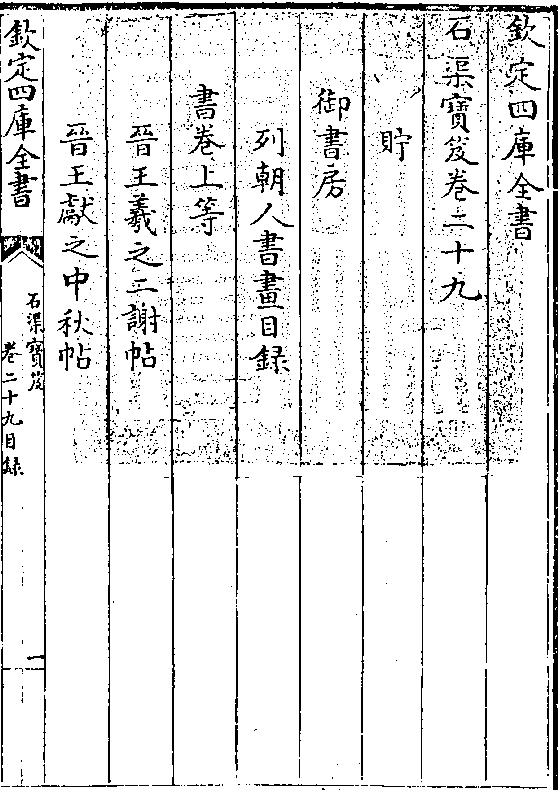 欽定四庫全書
石渠寶笈卷二十九
貯
御書房
列朝人書畫目録
書卷上等
晉王羲之二謝帖
晉王獻之中秋帖
欽定四庫全書
石渠寶笈
卷二十九目録
一